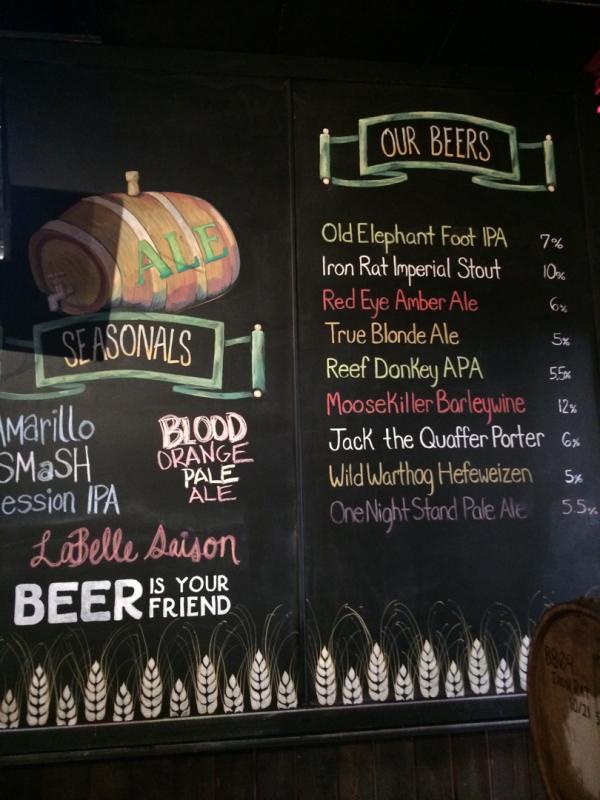 ALE
SEASONALS
SMaSH
IPA
BLOOD
ORANGE
PALE
ALE
LaBelle Saison
BEER IS YOUR
FRIEND
OUR BEERS
Old Elephant Foot IPA 7%
Iron Rat Imperial Stout 10%
Red Eye Amber Ale 6%
True Blonde Ale 5%
Reef Donkey APA 5.5%
MooseKiller Barleywine 12%
Jack the Quaffer Porter 6%
Wild Warthog Hefeweizen 5%
One Night Stand Pale Ale 5.5%